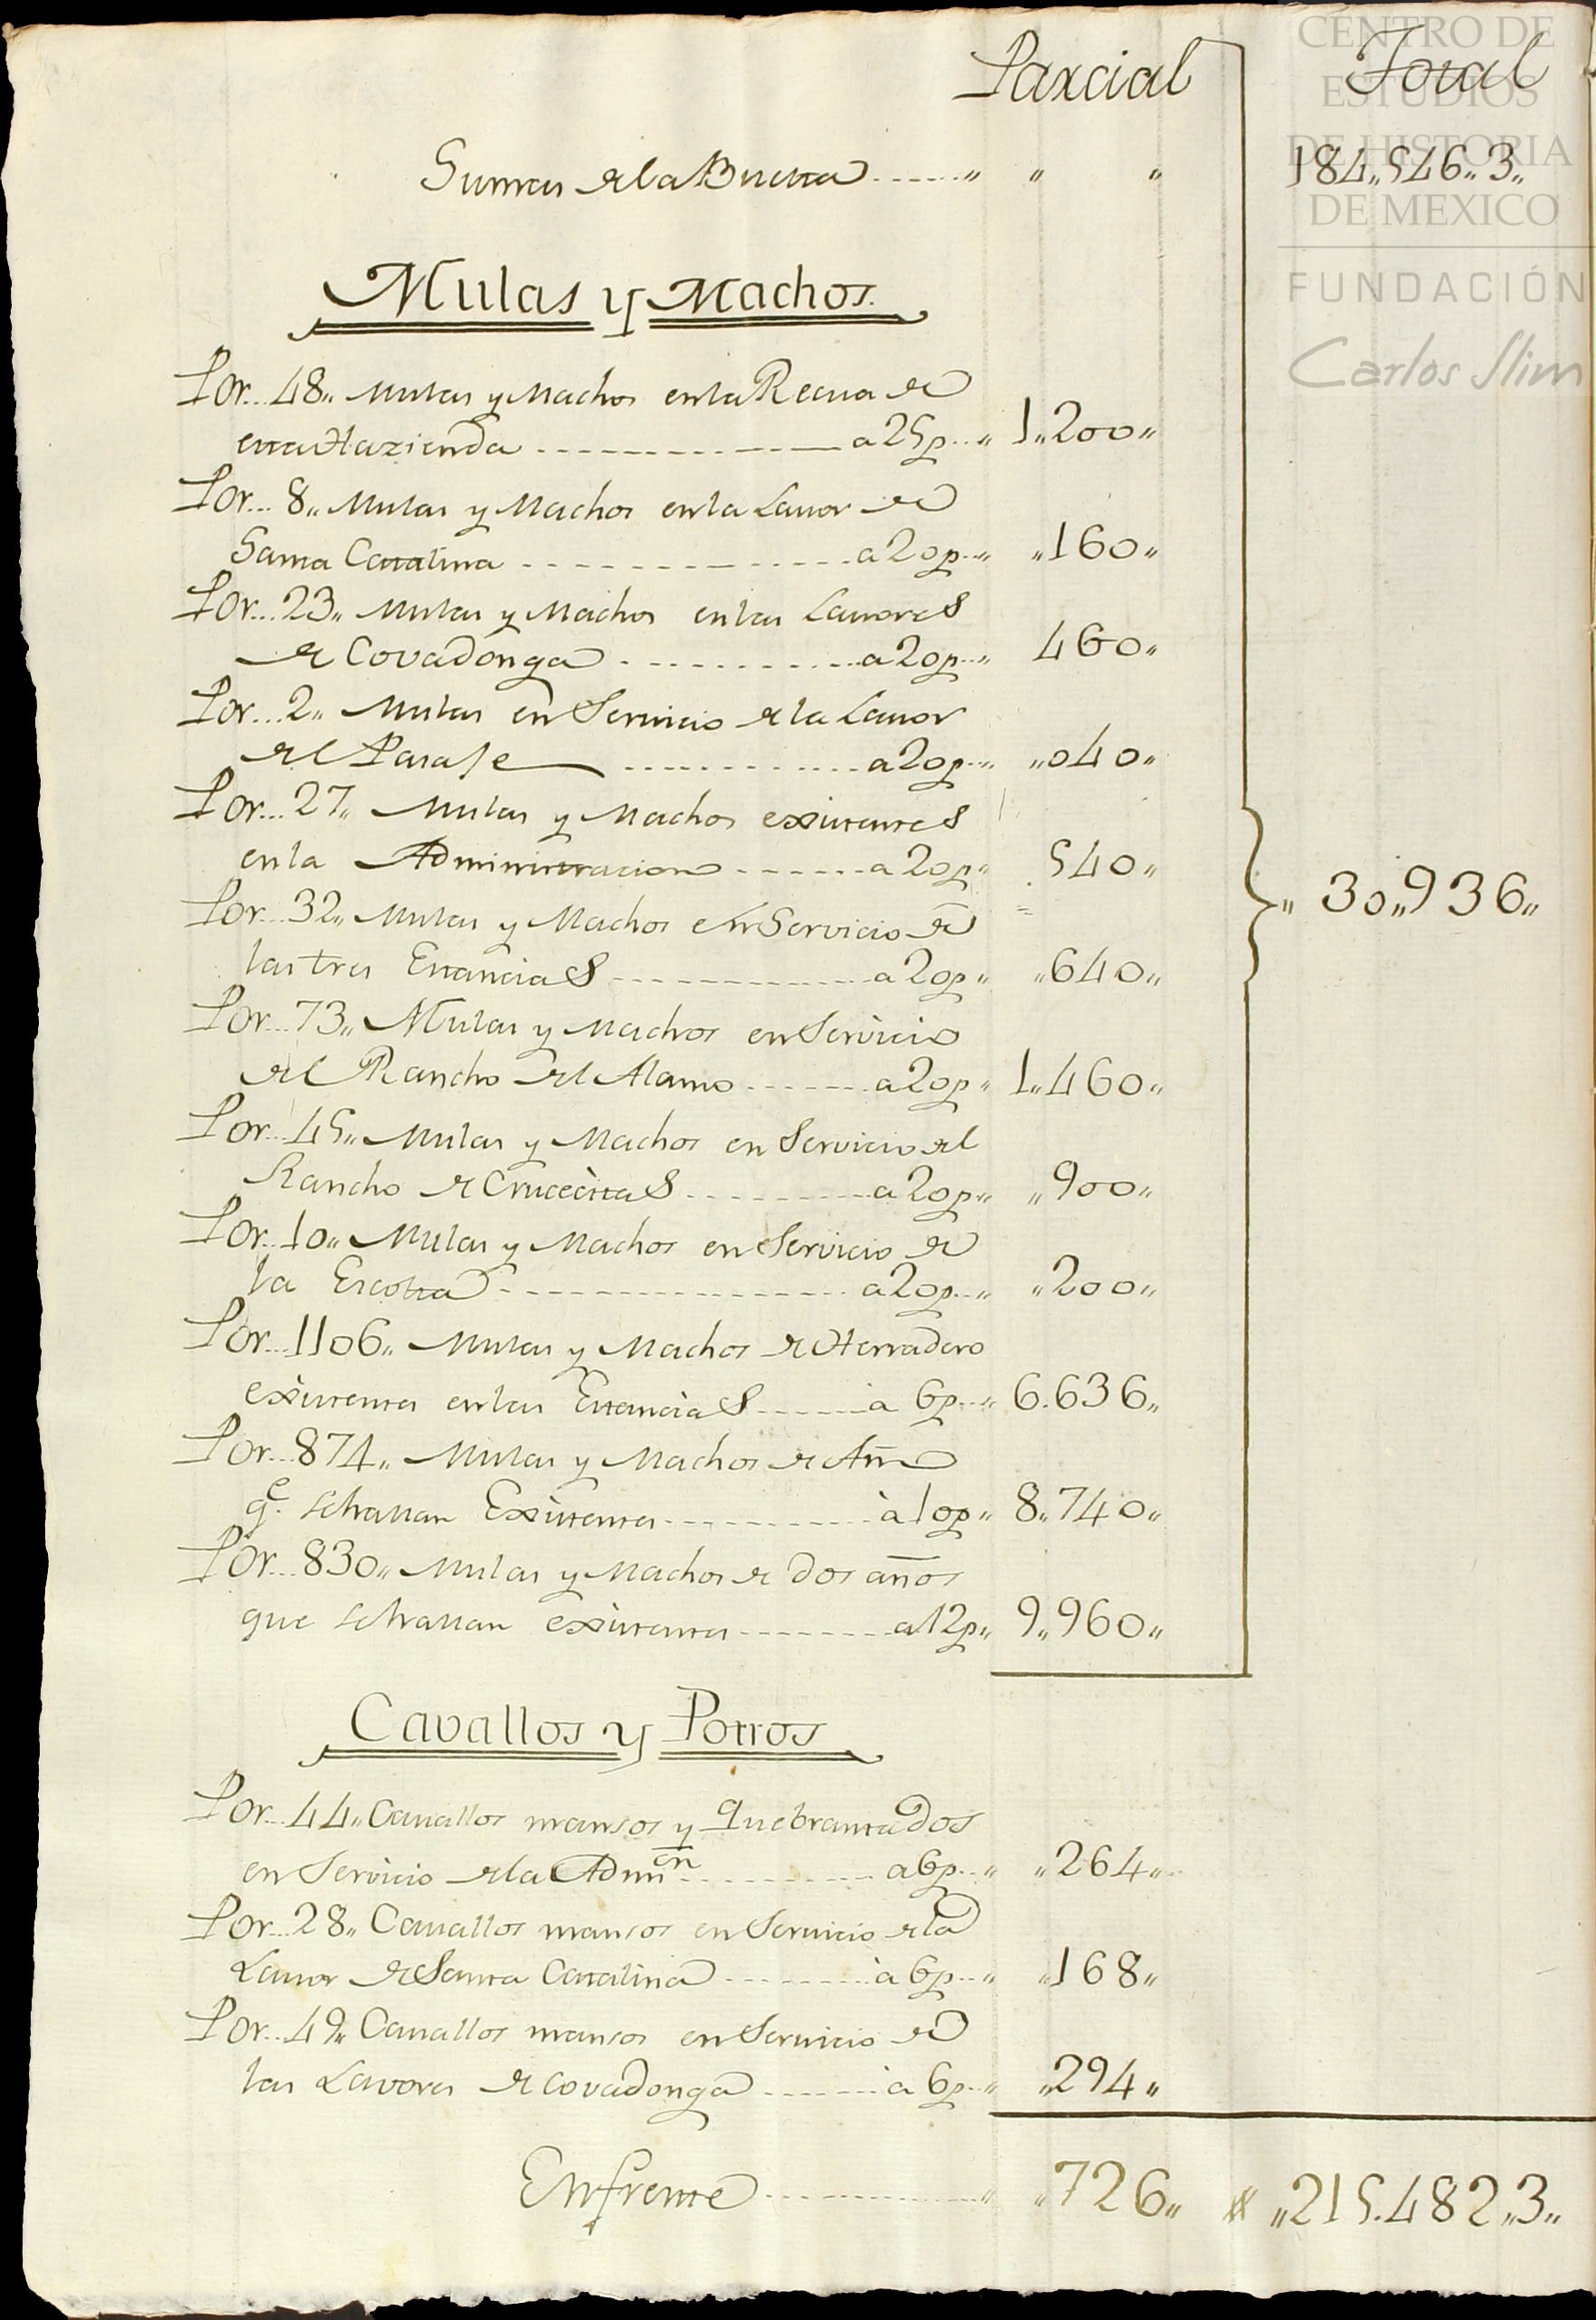 Parcial Total
Suma de la Buelta ...... " " " 184,,546,,3,,
CENTRO DE
ESTUDIOS
DE HISTORIA
DE MEXICO
FUNDACIÓN
Carlos Slim
Mulas y Machos.
Por... 48,, Mulas y Machos en la Recua de
esta Hazienda ------------ a 25p...,, 1,,200,,
Por... 8,, Mulas y Machos en la Lavor de
Santa Catalina ------------ a 20p...,, ,,160,,
Por... 23,, Mulas y Machos en las Lavores
de Covadonga ------------ a 20p...,, 460,,
Por... 2,, Mulas en Servicio de la Lavor
del Parage ------------ a 20p...,, ,,040,,
Por... 27,, Mulas y Machos existentes
en la Administracion ------- a 20p,, 540,,
Por... 32,, Mulas y Machos en Servicio de
las tres Estancias ------------ a 20p,, ,,640,,
,, 30,,936,,
Por... 73,, Mulas y Machos en Servicio
del Rancho del Alamo ------- a 20p,, 1,,460,,
Por... 45,, Mulas y Machos en Servicio del
Rancho de Crucecitas --------- a 20p,, ,,900,,
Por... 10,, Mulas y Machos en Servicio de
la Escolta ------------ a 20p...,, ,,200,,
Por... 1106,, Mulas y Machos de Herradero
existentes en las Estancias ------ a 6p...,, 6.636,,
Por... 874,, Mulas y Machos de Año
qe. se hallan Existentes ---------- à 10p,, 8,,740,,
Por... 830,, Mulas y Machos de dos años
que se hallan existentes -------- a 12p,, 9,,960,,
Cavallos y Potros
Por... 44,, Cavallos mansos y Quebrantados
en Servicio de la Admon ---------- a 6p...,, ,,264,,
Por... 28,, Cavallos mansos en Servicio de la
Lavor de Santa Catalina -------- à 6p...,, ,,168,,
Por... 49,, Cavallos mansos en Servicio de
las Lavores de Covadonga ------- à 6p...,, ,,294,,
Enfrente ------------ ,, ,,726,, ,,215.482,,3,,